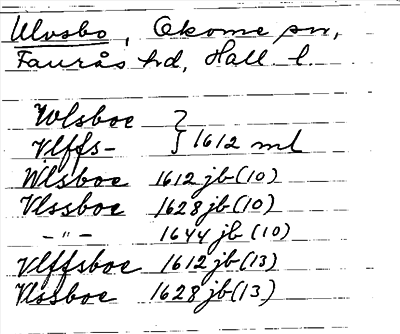 Ulvsbo, Okome sn,
Faurås hd, Hall. l.
Wlsboe }
Vlffs- } 1612 ml
Wlsboe 1612 jb (10)
Vlssboe 1628 jb (10)
-"- 1644 jb (10)
Vlffsboe 1612 jb (13)
Vlssboe 1628 jb (13)